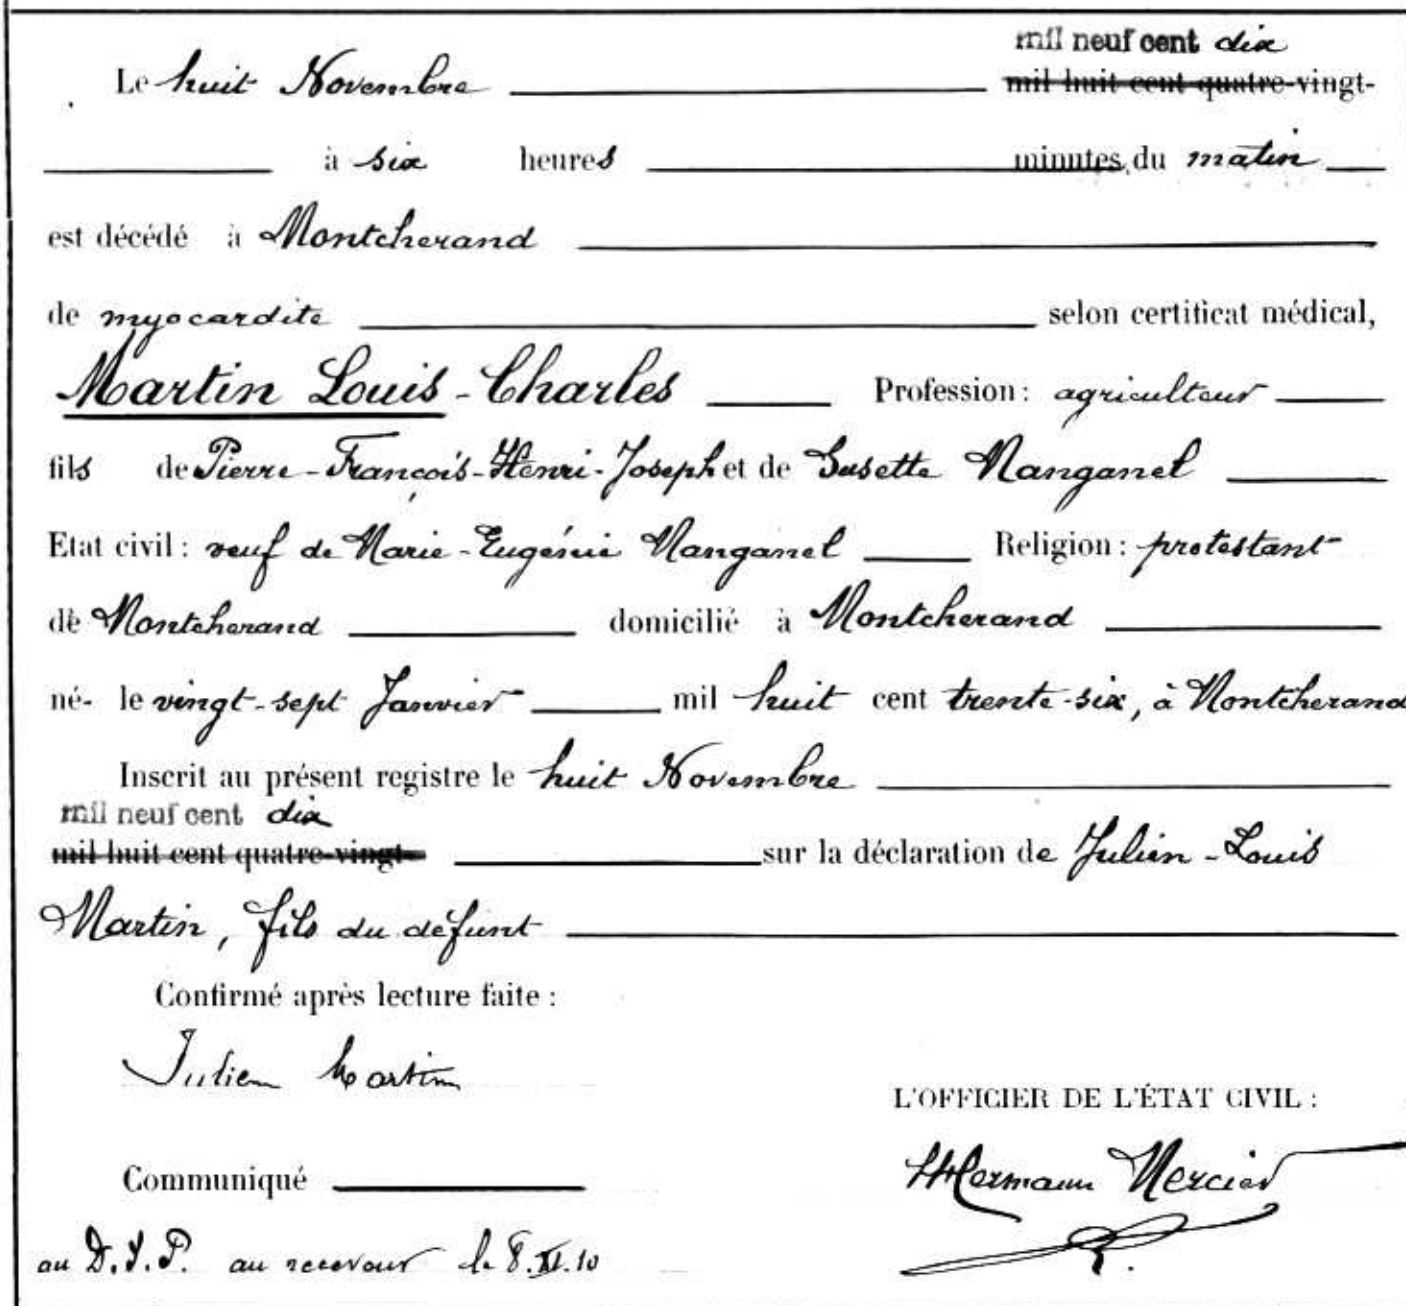 mil neuf cent dix
Le huit Novembre mil huit cent quatre-vingt-
à six heures minutes du matin
est décédé à Montcherand
de myocardite selon certificat médical,
Martin Louis-Charles Profession: agriculteur
fils de Pierre-François-Henri-Joseph et de Susette Manganel
Etat civil: veuf de Marie-Eugénie Manganel Religion: protestant
de Montcherand domicilié à Montcherand
né- le vingt-sept Janvier mil huit cent trente-six, à Montcherand
Inscrit au présent registre le huit Novembre
mil neuf cent dix
mil huit cent quatre-vingt- sur la déclaration de Julien-Louis
Martin, fils du défunt
Confirmé après lecture faite:
Julien Martin
L'OFFICIER DE L'ÉTAT CIVIL:
Hermann Mercier
Communiqué
au D.J.P. au receveur le 8.XI.10